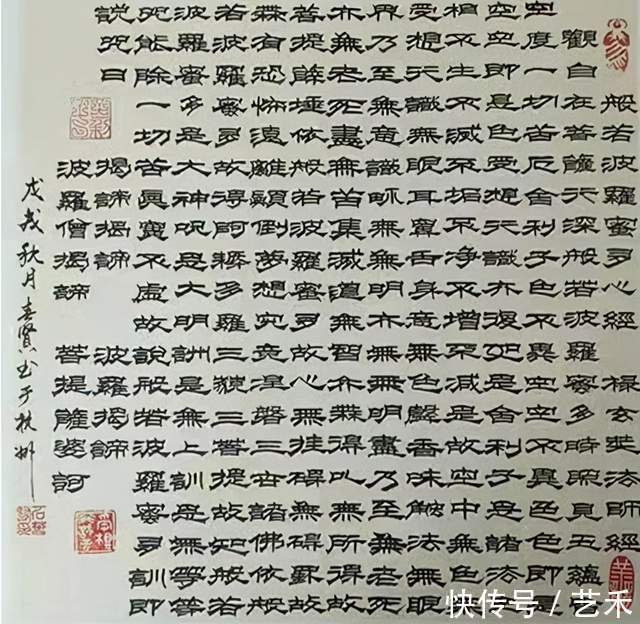 般若波羅蜜多心經 玄奘法師
觀自在菩薩行深般若波羅蜜多時照見五蘊皆
空度一切苦厄舍利子色不異空空不異色色即是
空空即是色受想行識亦復如是舍利子是諸法空
相不生不滅不垢不淨不增不減是故空中無色無
受想行識無眼耳鼻舌身意無色聲香味觸法無眼
界乃至無意識界無無明亦無無明盡乃至無老死
亦無老死盡無苦集滅道無智亦無得以無所得故
菩提薩埵依般若波羅蜜多故心無挂礙無罣礙故
無有恐怖遠離顛倒夢想究竟涅槃三世諸佛依般
若波羅蜜多故得阿耨多羅三藐三菩提故知般若
波羅蜜多是大神咒是大明咒是無上咒是無等等
咒能除一切苦真實不虛故說般若波羅蜜多咒即
說咒曰 揭諦揭諦 波羅揭諦
波羅僧揭諦 菩提薩婆訶
戊戌秋月 書于杭州
快传号/艺禾